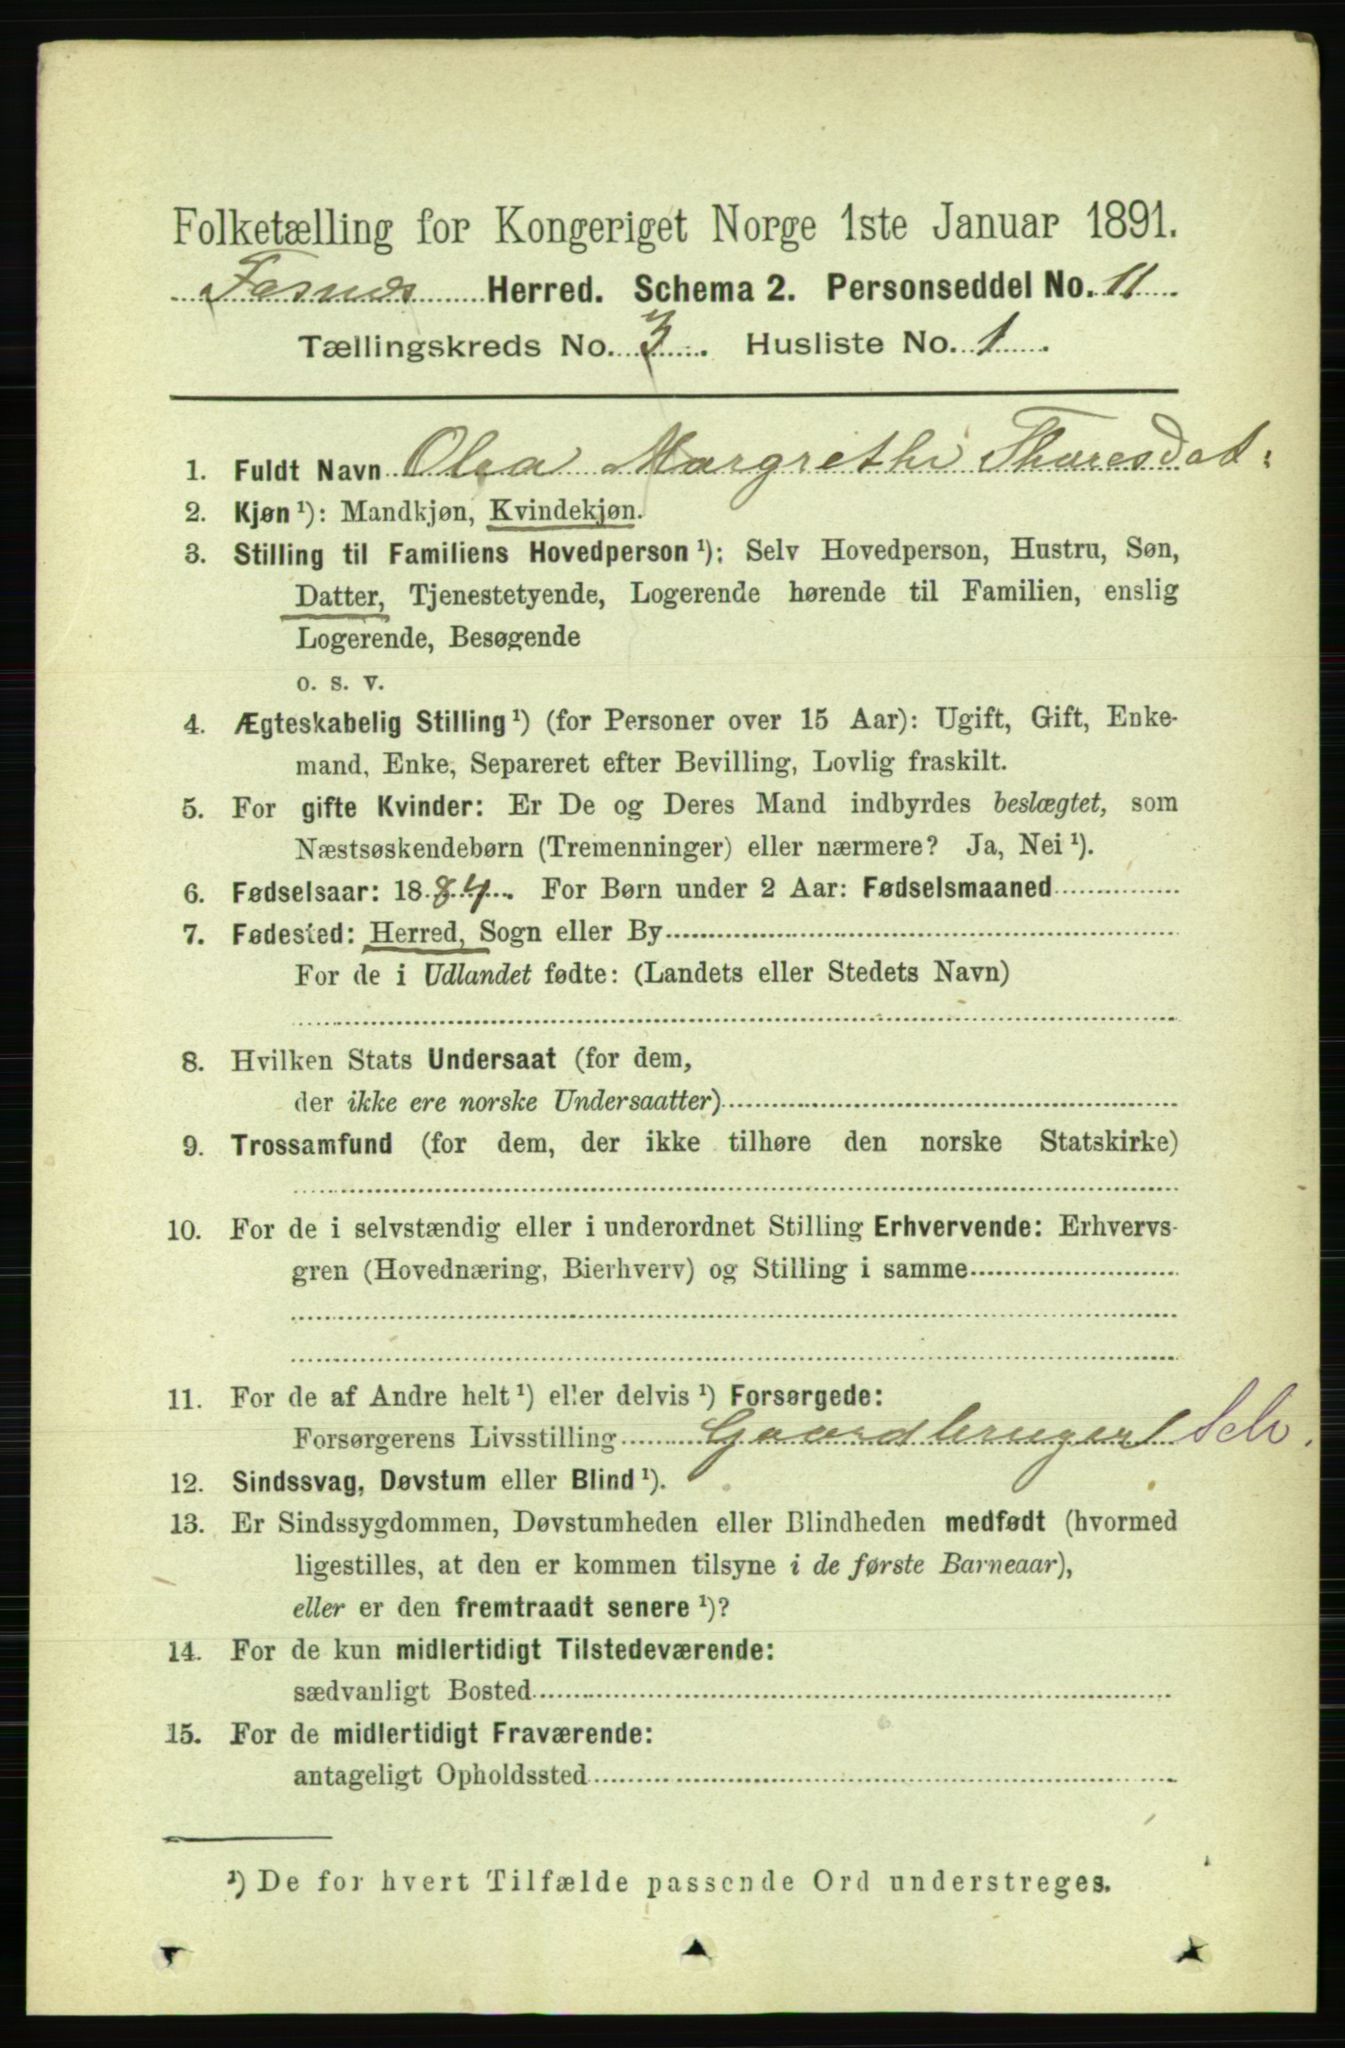 Folketælling for Kongeriget Norge 1ste Januar 1891.
Fosnes Herred. Schema 2. Personseddel No. 11
Tællingskreds No. 3. Husliste No. 1.
1. Fuldt Navn Olea Margrethe Thoresdat:
2. Kjøn ¹): Mandkjøn, Kvindekjøn.
3. Stilling til Familiens Hovedperson ¹): Selv Hovedperson, Hustru, Søn,
Datter, Tjenestetyende, Logerende hørende til Familien, enslig
Logerende, Besøgende
o. s. v.
4. Ægteskabelig Stilling ¹) (for Personer over 15 Aar): Ugift, Gift, Enke-
mand, Enke, Separeret efter Bevilling, Lovlig fraskilt.
5. For gifte Kvinder: Er De og Deres Mand indbyrdes beslægtet, som
Næstsøskendebørn (Tremenninger) eller nærmere? Ja, Nei ¹).
6. Fødselsaar: 1884. For Børn under 2 Aar: Fødselsmaaned
7. Fødested: Herred, Sogn eller By
For de i Udlandet fødte: (Landets eller Stedets Navn)
8. Hvilken Stats Undersaat (for dem,
der ikke ere norske Undersaatter)
9. Trossamfund (for dem, der ikke tilhøre den norske Statskirke)
10. For de i selvstændig eller i underordnet Stilling Erhvervende: Erhvervs-
gren (Hovednæring, Bierhverv) og Stilling i samme
11. For de af Andre helt ¹) eller delvis ¹) Forsørgede:
Forsørgerens Livsstilling Gaardbruger Selv.
12. Sindssvag, Døvstum eller Blind ¹).
13. Er Sindssygdommen, Døvstumheden eller Blindheden medfødt (hvormed
ligestilles, at den er kommen tilsyne i de første Barneaar),
eller er den fremtraadt senere ¹)?
14. For de kun midlertidigt Tilstedeværende:
sædvanligt Bosted
15. For de midlertidigt Fraværende:
antageligt Opholdssted
¹) De for hvert Tilfælde passende Ord understreges.